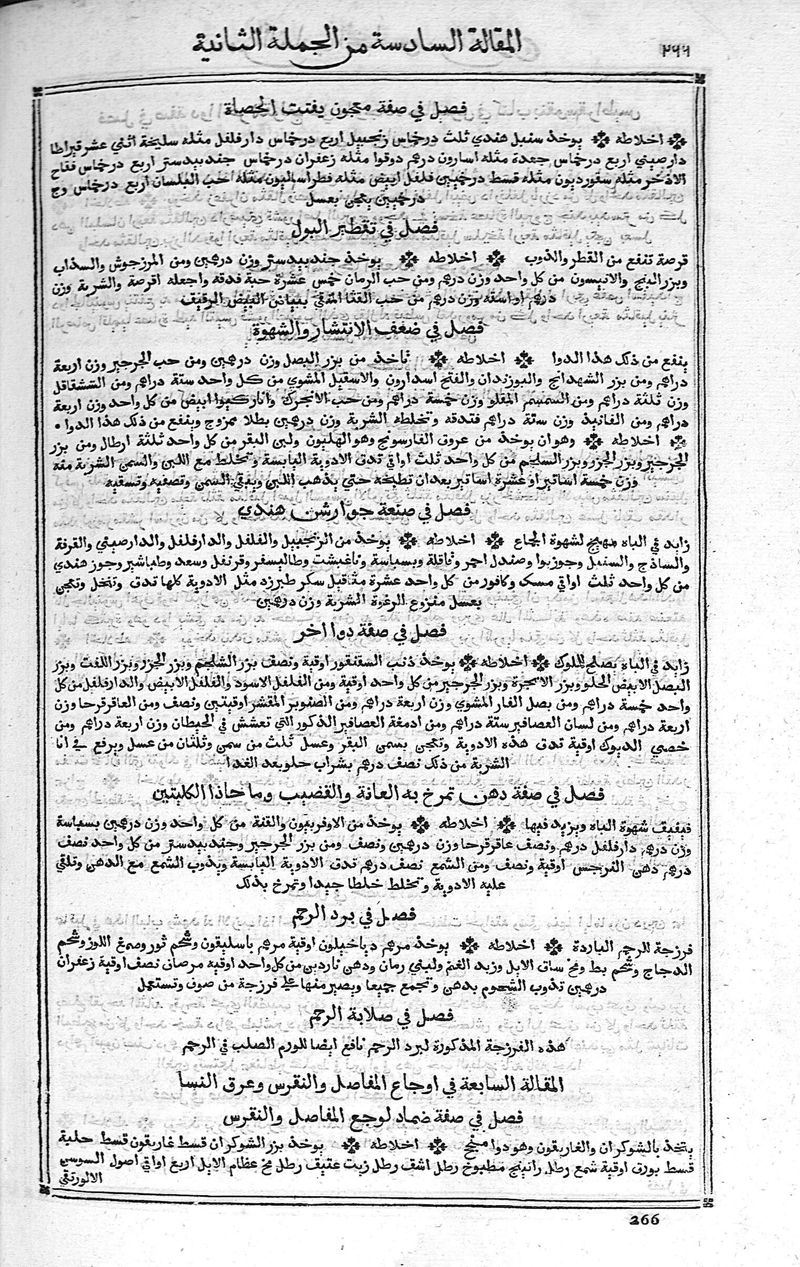 ٢٦٦
المقالة السادسة من الجملة الثانية
فصل في صفة معجون يفتت الحصاة
اخلاطه يوخذ سنبل هندي ثلث درخماس زنجبيل اربع درخماس دارفلفل مثله سليخة اثني عشر قيراطا
دارصيني اربع درخماس جعدة مثله اسارون درهم دوقوا مثله زعفران درخماس جندبيدستر اربع درخماس فقاح
الاذخر مثله سقورديون مثله قسط درخميين فلفل ابيض مثله فطراساليون مثله حب البلسان اربع درخماس وج
درخميين يعجن بعسل
فصل في تقطير البول
قرصة تنفع من القطر والذوب اخلاطه يوخذ جندبيدستر وزن درهمين ومن المرزجوش والسذاب
وبزر البنج والانيسون من كل واحد وزن درهم ومن حب الرمان خمس عشرة حبة فدقه واجعله اقرصة والشربة وزن
درهم او اسفه وزن درهم من حب القثا المنقي ببياض البيض الرقيق
فصل في ضعف الانتشار والشهوة
ينفع من ذلك هذا الدوا اخلاطه تاخذ من بزر البصل وزن درهمين ومن حب الجرجير وزن اربعة
دراهم ومن بزر الشهدانج والبوزيدان والفنج اسدارون والاسقيل المشوي من كل واحد ستة دراهم ومن الششقاقل
وزن ثلثة دراهم ومن السمسم المقلو وزن خمسة دراهم ومن حب الانجرك واناركيوا ابيض من كل واحد وزن اربعة
دراهم ومن الفانيد وزن ستة دراهم فتدقه وتخلطه الشربة وزن درهمين بطلا ممزوج وينفع من ذلك هذا الدوا
اخلاطه وهو ان يوخذ من عروق الفارسونج وهو الهليون ولبن البقر من كل واحد ثلثة ارطال ومن بزر
الجرجير وبزر الجزر وبزر السلجم من كل واحد ثلث اواقي تدق الادوية اليابسة وتخلط مع اللبن والسمن الشربة منه
وزن خمسة اساتير او عشرة اساتير بعد ان تطبخه حتي يذهب اللبن ويبقي السمن وتصفيه وتسقيه
فصل في صنعة جوارشن هندي
زايد في الباه مهيج لشهوة الجماع اخلاطه يوخذ من الزنجبيل والفلفل والدارفلفل والدارصيني والقرفة
والساذج والسنبل وجوزبوا وصندل احمر وقاقلة وبسباسة وناغبشت وطاليسفر وقرنفل وسعد وطباشير وجوز هندي
من كل واحد ثلث اواقي مسك وكافور من كل واحد عشرة مثاقيل سكر طبرزد مثل الادوية كلها تدق وتنخل وتعجن
بعسل منزوع الرغوة الشربة وزن درهمين
فصل في صفة دوا اخر
زايد في الباه يصلح للملوك اخلاطه يوخذ ذنب السقنقور اوقية ونصف بزر الشلجم وبزر الجزر وبزر اللفت وبزر
البصل الابيض الحلو وبزر الانجرة وبزر الجرجير من كل واحد اوقية ومن الفلفل الاسود والفلفل الابيض والدارفلفل من كل
واحد خمسة دراهم ومن بصل الفار المشوي وزن اربعة دراهم ومن الصنوبر المقشر اوقيتين ونصف ومن العاقرقرحا وزن
اربعة دراهم ومن لسان العصافير ستة دراهم ومن ادمغة العصافير الذكور التي تعشش في الحيطان وزن اربعة دراهم ومن
خصي الديوك اوقية تدق هذه الادوية وتعجن بسمن البقر وعسل ثلث من سمن وثلثان من عسل ويرفع في انا
الشربة من ذلك نصف درهم بشراب حلو بعد الغدا
فصل في صفة دهن تمرخ به العانة والقضيب وما حاذا الكليتين
فيفيق شهوة الباه ويزيد فيها اخلاطه يوخذ من الاوفربيون والقنة من كل واحد وزن درهمين بسباسة
وزن درهم دارفلفل درهم ونصف عاقرقرحا وزن درهمين ونصف ومن بزر الجرجير وجندبيدستر من كل واحد نصف
درهم دهن النرجس اوقية ونصف ومن الشمع نصف درهم تدق الادوية اليابسة ويذوب الشمع مع الدهن وتلقي
عليه الادوية وتخلط خلطا جيدا وتمرخ بذلك
فصل في برد الرحم
فرزجة للرحم الباردة اخلاطه يوخذ مرهم دياخيلون اوقية مرهم باسليقون وشحم ثور وصمغ اللوز وشحم
الدجاج وشحم بط ومخ ساق الايل وزبد الغنم ولبني رمان ودهن ناردين من كل واحد اوقية مرصاني نصف اوقية زعفران
درهمين تذوب الشحوم بدهن وتجمع جميعا ويصير منها علي فرزجة من صوف وتستعمل
فصل في صلابة الرحم
هذه الفرزجة المذكورة لبرد الرحم نافع ايضا للورم الصلب في الرحم
المقالة السابعة في اوجاع المفاصل والنقرس وعرق النسا
فصل في صفة ضماد لوجع المفاصل والنقرس
يتخذ بالشوكران والغاريقون وهو دوا منجح اخلاطه يوخذ بزر الشوكران قسط غاريقون قسط حلبة
قسط بورق اوقية شمع رطل راتينج مطبوخ رطل اشق رطل زيت عتيق رطل مخ عظام الايل اربع اواقي اصول السوسن
الالورتقي
266